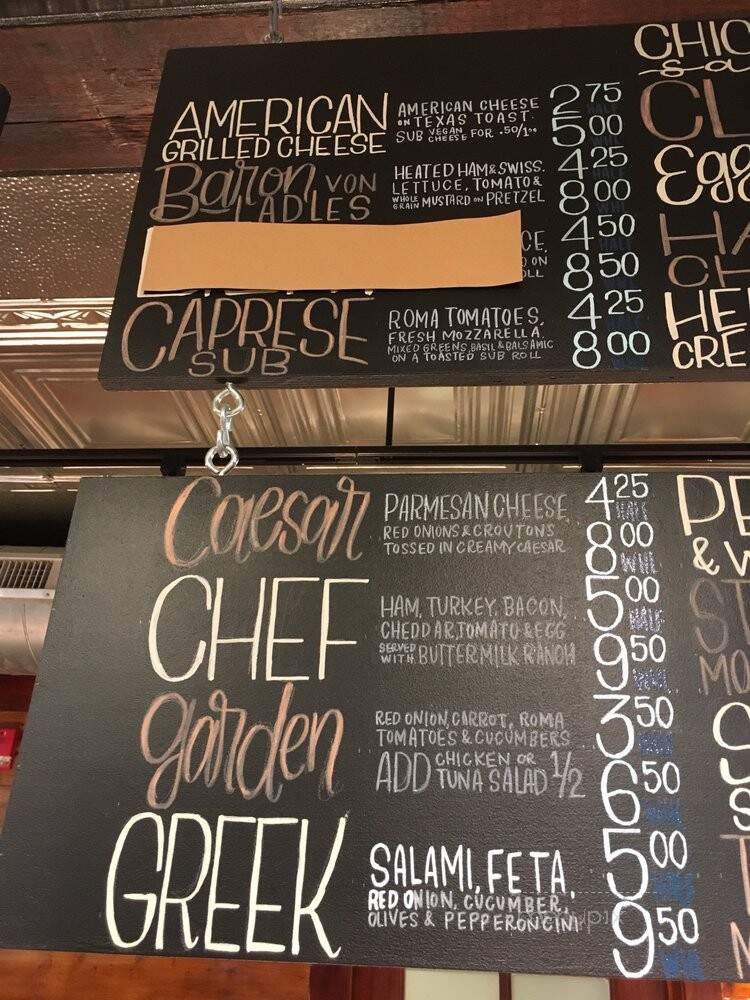 AMERICAN
GRILLED CHEESE
AMERICAN CHEESE
ON TEXAS TOAST.
SUB VEGAN CHEESE FOR .50/1.00
2 75
5 00
Baron VON
LADLES
HEATED HAM & SWISS.
LETTUCE, TOMATO &
WHOLE GRAIN MUSTARD ON PRETZEL
4 25
8 00
CE,
ON
OLL
4 50
8 50
CAPRESE
SUB
ROMA TOMATOES,
FRESH MOZZARELLA,
MIXED GREENS, BASIL & BALSAMIC
ON A TOASTED SUB ROLL
4 25
8 00
CHIC
CL
Egg
HA
CH
HE
CRE
Caesar
PARMESAN CHEESE
RED ONIONS & CROUTONS
TOSSED IN CREAMY CAESAR
4 25
HALF
8 00
WHL
CHEF
HAM, TURKEY, BACON,
CHEDDAR, TOMATO & EGG
SERVED WITH BUTTERMILK RANCH
5 00
HALF
9 50
garden
RED ONION, CARROT, ROMA
TOMATOES & CUCUMBERS
ADD CHICKEN OR TUNA SALAD 1/2
3 50
6 50
GREEK
SALAMI, FETA,
RED ONION, CUCUMBER,
OLIVES & PEPPERONCINI
5 00
9 50
& W
ST
MO
S